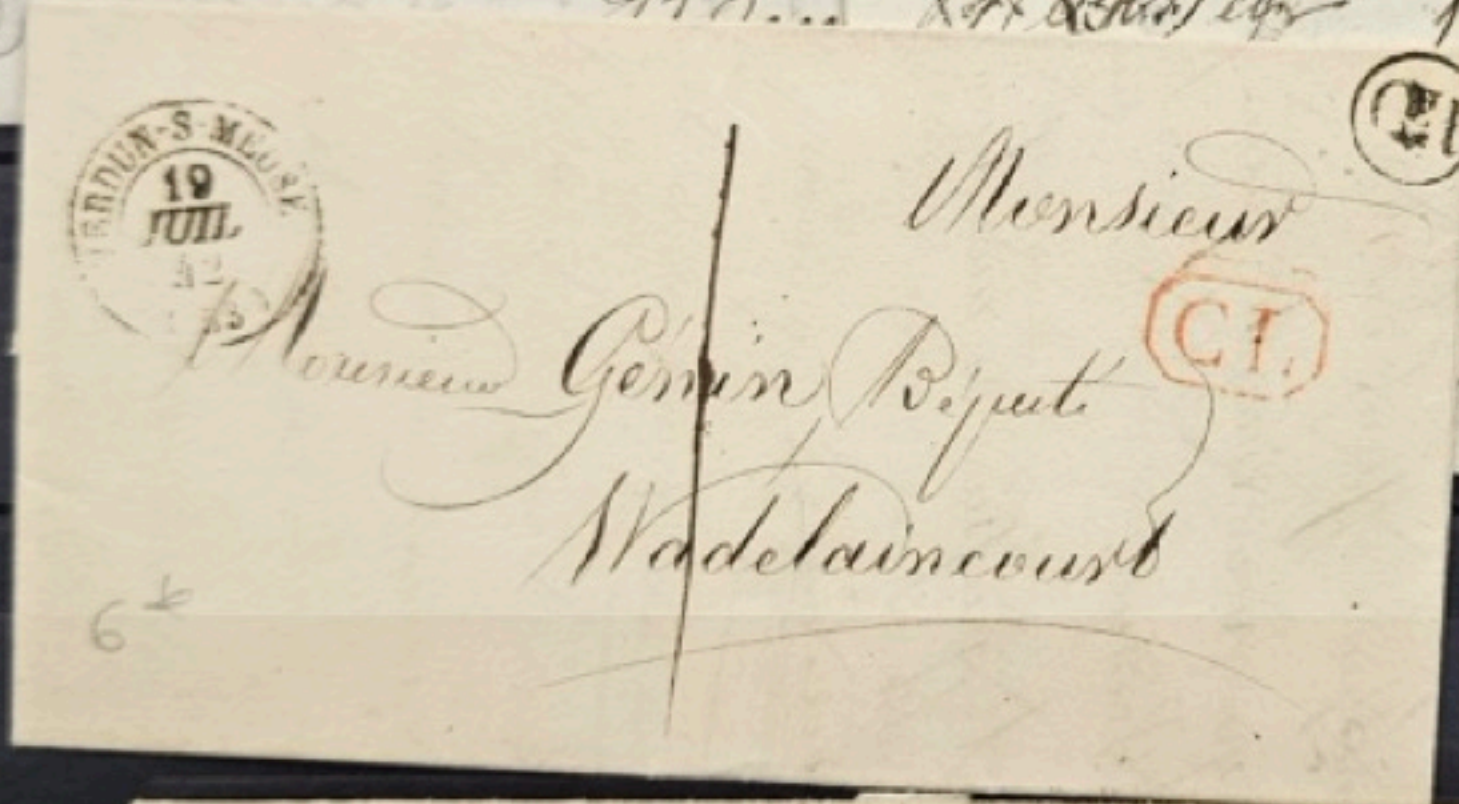 VERDUN-S-MEUSE
19
JUIL
42
Monsieur
C L.
Monsieur Génin Député
Wadelaincourt
1
6